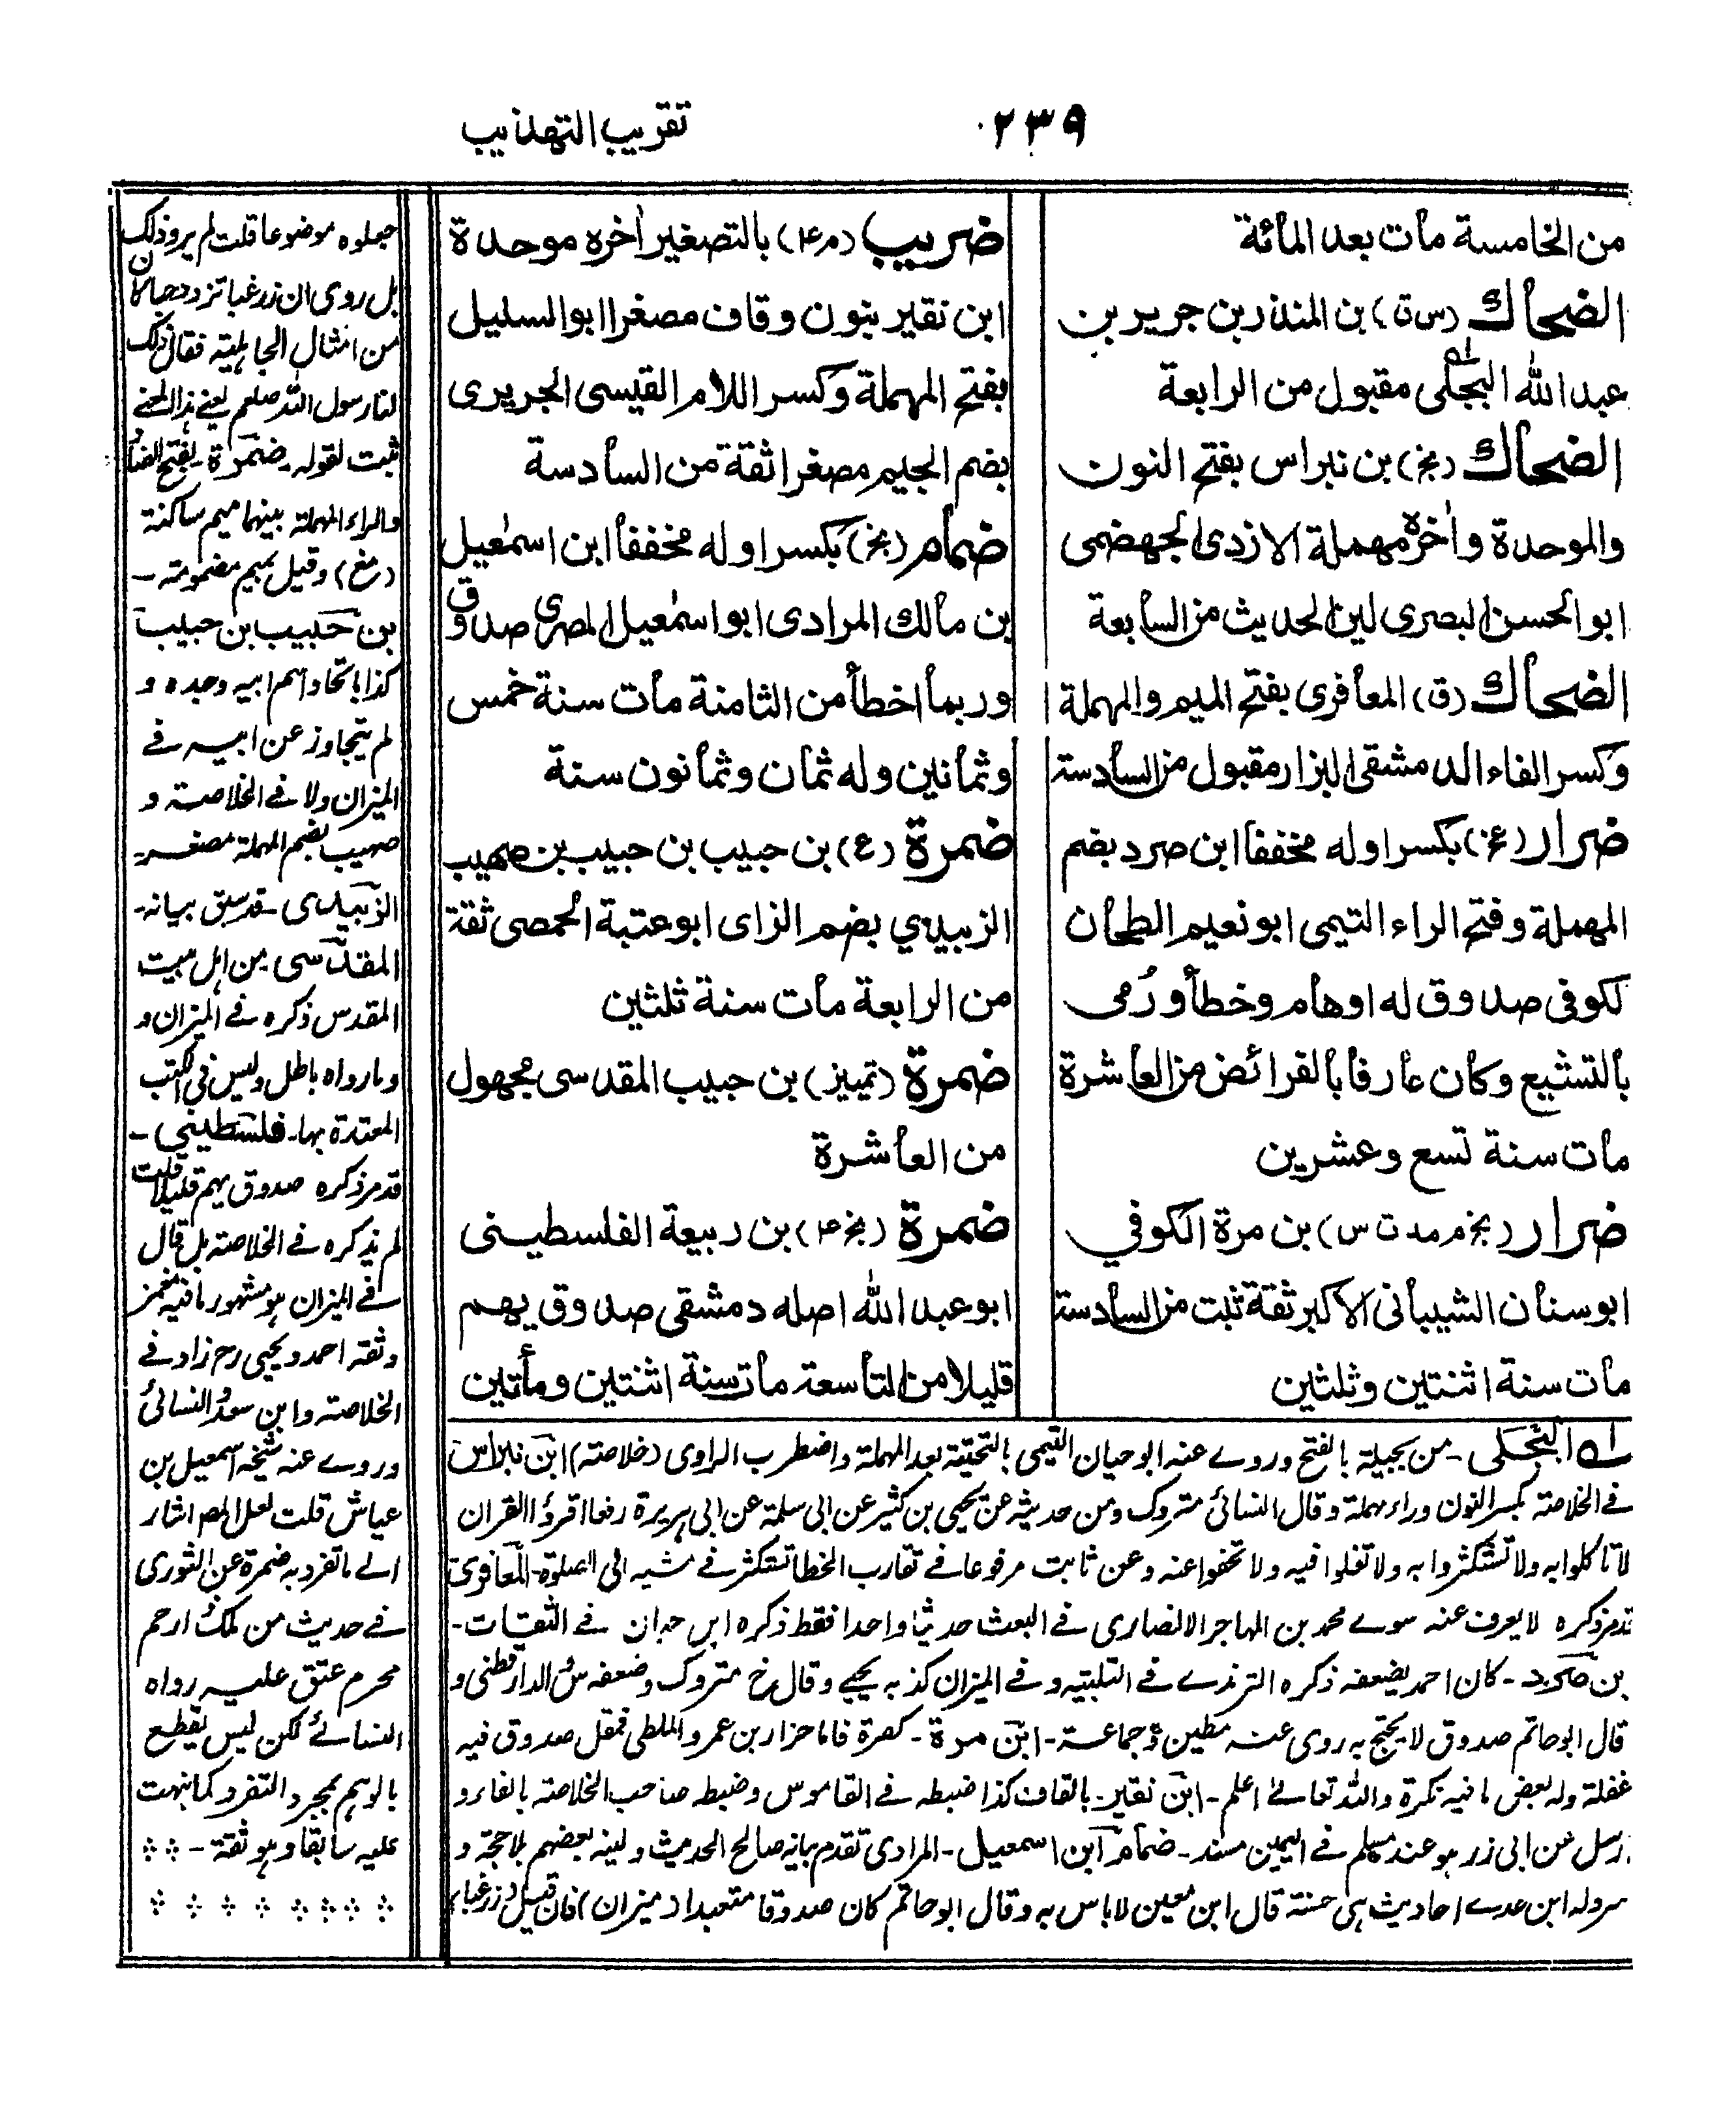 ٢٣٩
تقريب التهذيب
من الخامسة مات بعد المائة
الضحاك (س ق) بن المنذر بن جرير بن
عبد الله البجلى مقبول من الرابعة
الضحاك (بخ) بن نبراس بفتح النون
والموحدة وآخره مهملة الازدى الجهضمى
ابو الحسن البصرى لين الحديث من السابعة
الضحاك (ق) المعافرى بفتح الميم والمهملة
وكسر الفاء الدمشقى البزار مقبول من السادسة
ضرار (عخ) بكسر اوله مخففا ابن صرد بضم
المهملة وفتح الراء التيمى ابو نعيم الطحان
لكوفى صدوق له اوهام وخطأ ورُمى
بالتشيع وكان عارفا بالفرائض من العاشرة
مات سنة تسع وعشرين
ضرار (بخ م مد ت س) بن مرة الكوفي
ابو سنان الشيبانى الاكبر ثقة ثبت من السادسة
مات سنة اثنتين وثلثين
ضريب (م ۴) بالتصغير آخره موحدة
ابن نقير بنون وقاف مصغرا ابو السليل
بفتح المهملة وكسر اللام القيسى الجريرى
بضم الجيم مصغرا ثقة من السادسة
ضمام (بخ) بكسر اوله مخففا ابن اسمٰعيل
بن مالك المرادى ابو اسمٰعيل المصرى صدوق
وربما اخطأ من الثامنة مات سنة خمس
وثمانين وله ثمان وثمانون سنة
ضمرة (ع) بن حبيب بن حبيب بن صهيب
الزبيدي بضم الزاى ابو عتبة الحمصى ثقة
من الرابعة مات سنة ثلثين
ضمرة (تمييز) بن حبيب المقدسى مجهول
من العاشرة
ضمرة (بخ ۴) بن ربيعة الفلسطينى
ابو عبد الله اصله دمشقى صدوق يهم
قليلا من التاسعة مات سنة اثنتين ومأتين
له البجلى - من بجيلة بالفتح وروے عنه ابو حيان التيمى بالتحتية بعد المهملة واضطرب الراوى (خلاصة) ابن نبراس
فے الخلاصة بكسر النون وراء مهملة وقال النسائى متروك ومن حديثه عن يحيى بن كثير عن ابى سلمة عن ابى هريرة رفعا اقرؤا القران
لا تاكلوا به ولا تستكثروا به ولا تغلوا فيه ولا تجفوا عنه وعن ثابت مرفوعا فے تقارب الخطا تستكثر فے مشيه الى الصلوة - المعافرى
قد مر ذكره لا يعرف عنه سوے محمد بن المهاجر الانصارى فے البعث حديثا واحدا فقط ذكره ابن حبان فے الثقات -
بن صرد - كان احمد يضعفه ذكره الترمذے فے التلبية و فے الميزان كذبه يحيے وقال خ متروك وضعفه س والدارقطنى و
قال ابو حاتم صدوق لا يحتج به روى عنه مطين وجماعة - ابن مرة - كصرة فاما ضرار بن عمرو الملطى فمقل صدوق فيه
غفلة وله بعض ما فيه نكرة والله تعالے اعلم - ابن نقير - بالقاف كذا ضبطه فے القاموس وضبطه صاحب الخلاصة بالفاء و
ارسل عن ابى ذر هو عند مسلم فے اليمين مسند - ضمام ابن اسمعيل - المرادى تقدم بيانه صالح الحديث ولينه بعضهم بلا حجة و
سرد له ابن عدے احاديث هى حسنة قال ابن معين لا باس به وقال ابو حاتم كان صدوقا متعبدا (ميزان) فان قيل زر غبا
جعلوه موضوعا قلت لم يرو ذلك
بل روى ان زر غبا تزدد حبا كان
من امثال الجاهلية فقال ذلك
لنا رسول الله صلعم يعنے هذا المعنے
ثبت لقوله - ضمرة - بفتح الضاد
والراء المهملة بينهما ميم ساكنة
(مغ) وقيل بميم مضمومة -
بن حبيب بن حبيب
كذا باتحاد اسم ابيه وجده و
لم يتجاوز عن ابيه فے
الميزان ولا فے الخلاصة و
صهيب بضم المهملة مصغر -
الزبيدى - قد سبق بيانه -
المقدسى من اهل بيت
المقدس ذكره فے الميزان و
ما رواه باطل وليس فى الكتب
المعتدة بها - فلسطينى -
قد مر ذكره صدوق يهم قليلا قلت
لم يذكره فے الخلاصة بل قال
فے الميزان هو مشهور ما فيه مغمز
وثقه احمد ويحيى رح زاد فے
الخلاصة وابن سعد والنسائى
وروے عنه شيخه اسمعيل بن
عياش قلت لعل المص اشار
الے ما تفرد به ضمرة عن الثورى
فے حديث من ملك ذا رحم
محرم عتق عليه رواه
النسائے لكن ليس يقطع
بالوهم بمجرد التفرد كما نبهت
عليه سابقا وهو ثقة -